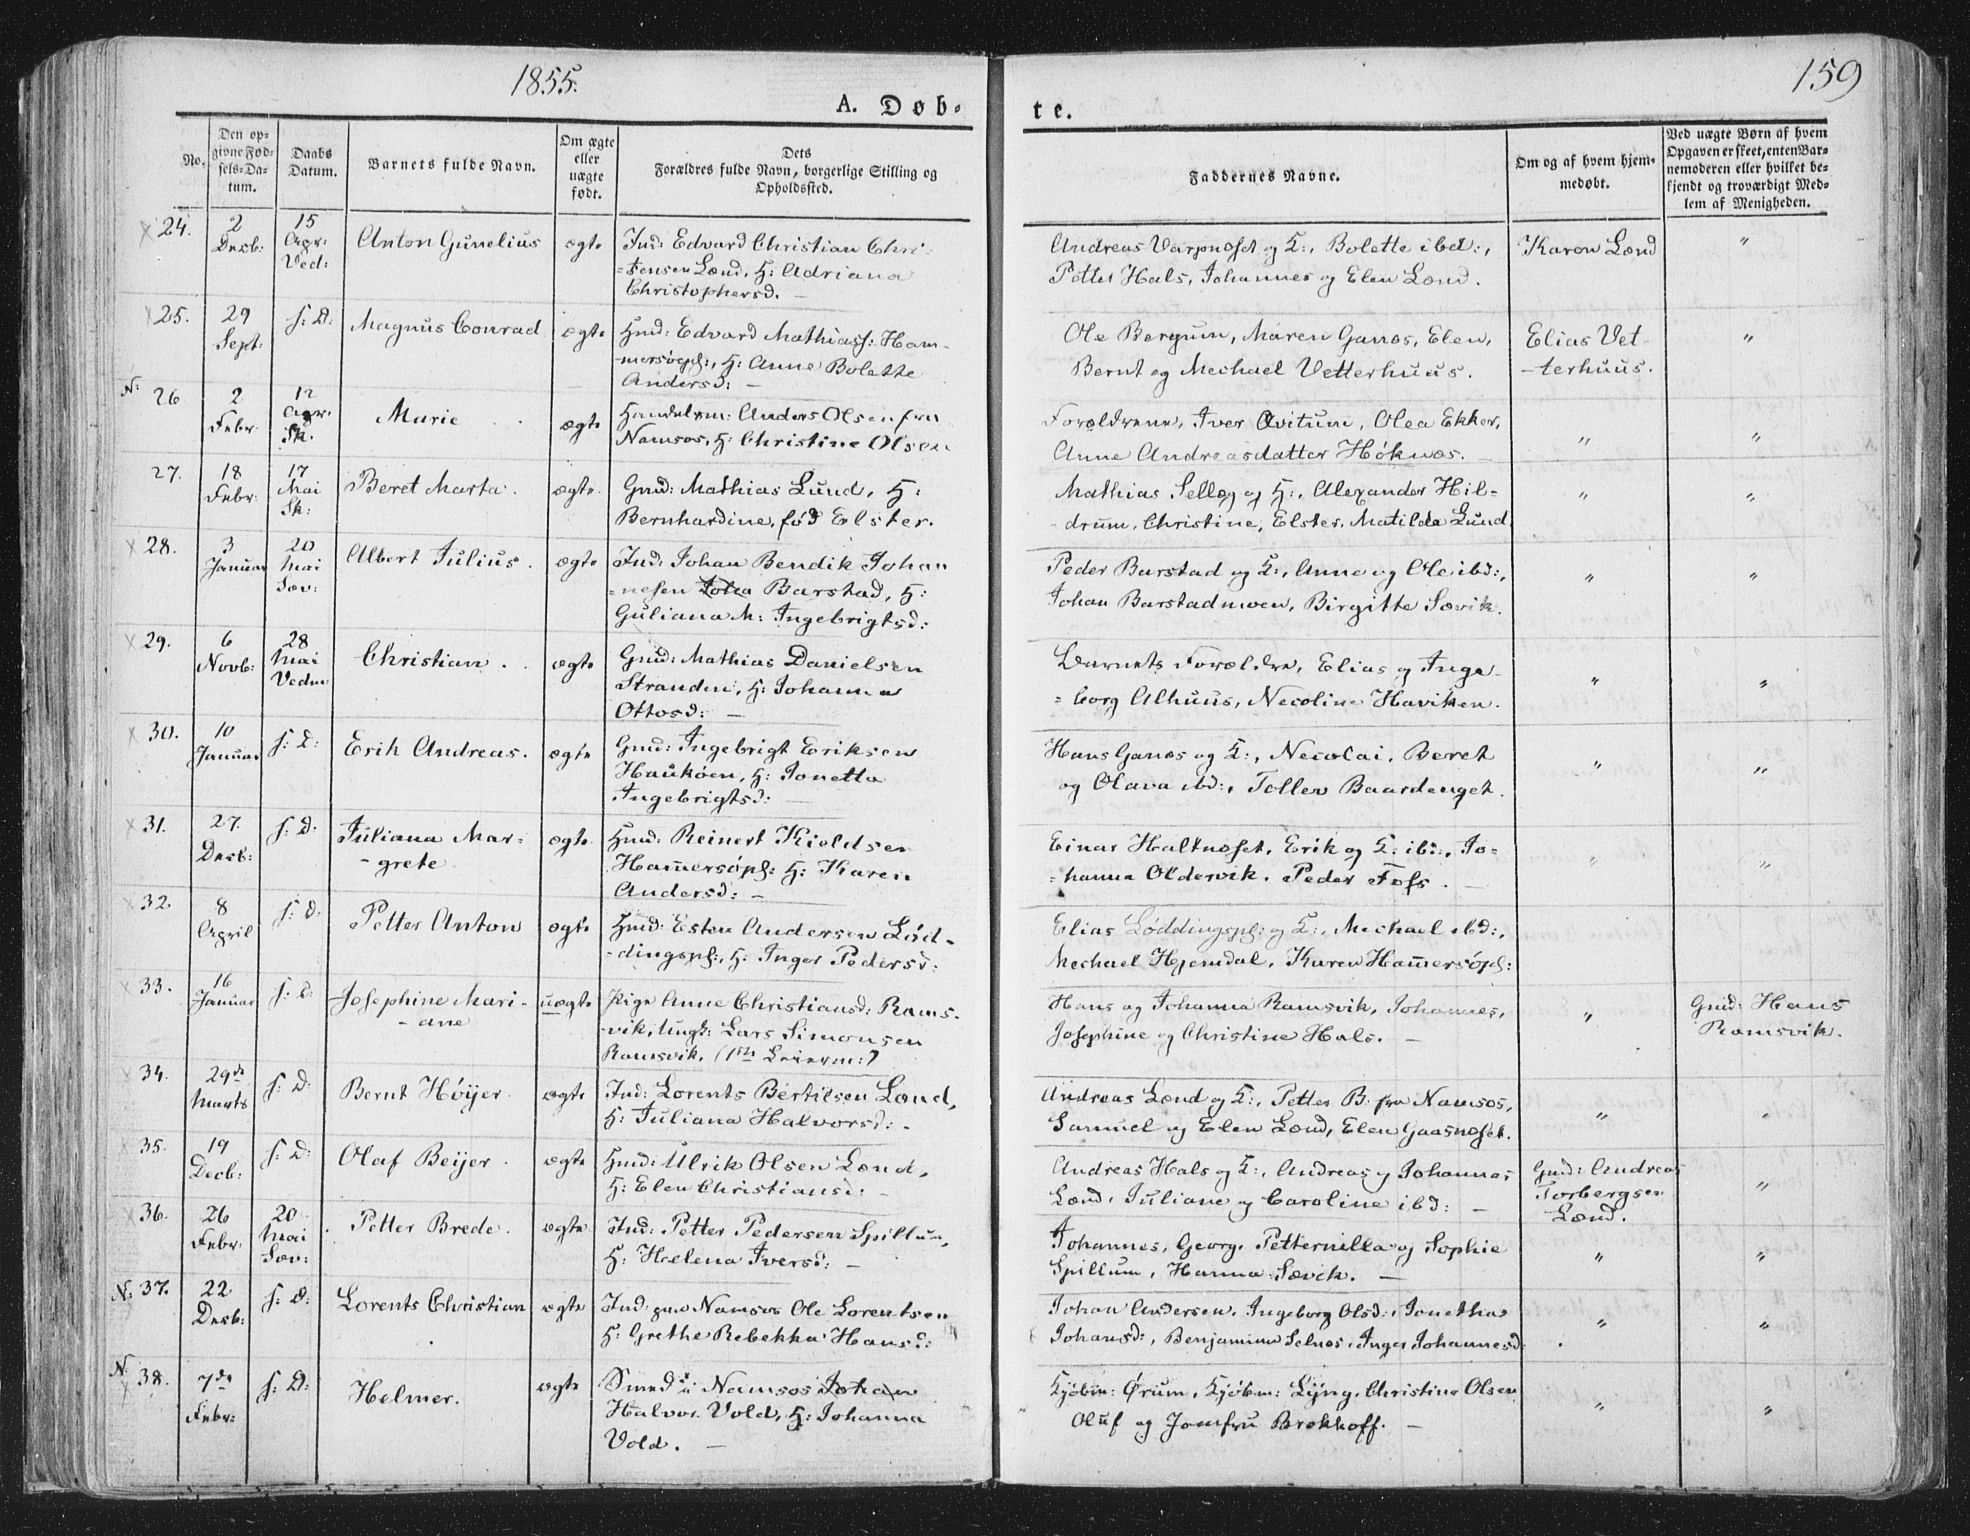 1855.
159
A. Døb-
te.
No.
Den op-
givne Fød-
sels-Da-
tum.
Daabs
Datum.
Barnets fulde Navn.
Om ægte
eller
uægte
født.
Dets
Forældres fulde Navn, borgerlige Stilling og
Opholdssted.
Faddernes Navne.
Om og af hvem hjem-
medøbt.
Ved uægte Børn af hvem
Opgaven er skeet, enten Bar-
nemoderen eller hvilket be-
kjendt og troværdigt Med-
lem af Menigheden.
24.
2
Decb:
15
Apr:
Ved:
Anton Gunelius
ægte
Ind: Edvard Christian Chri-
=stensen Lænd, H: Adriana
Christophersd. —
Andreas Varpnæset og K:, Bolette ibd:,
Petter Hals, Johannes og Elen Lænd.
Karen Lænd
"
25.
29
Sept:
s: D:
Magnus Conrad
ægte
Hmd: Edvard Mathiass: Ham-
-mersøepl:, H: Anne Bolette
Andersd: —
Ole Bergum, Maren Ganæs, Elen,
Bernt og Mechael Vetterhuus.
Elias Vet-
-terhuus.
"
N:
26
2
Febr.
12
Apr:
Sk.
Marie
ægte
Handelsm: Anders Olsen fra
Namsos, H: Christine Olsen
Forældrene, Iver Qvitum, Olea Ekker,
Anne Andreasdatter Høknæs.
"
"
27.
18
Febr:
17
Mai
Sk:
Beret Marta.
ægte.
Gmd: Mathias Lund, H:
Bernhardine, fød Elster.
Mathias Selleg og H:, Alexander Hil=
-drum, Christine, Elster, Matilda Lund
"
"
28.
3
Januar
20
Mai
Sæv:
Albert Julius.
ægte
Ind: Johan Bendik Johan
=nesen Barstad, H:
Guliana M: Ingebrigtsd:
Peder Barstad og K:, Anne og Ole ibd:,
Johan Barstadmoen, Birgitte Sævik.
"
"
29.
6
Novb:
28
Mai
Vedm
Christian.
ægte
Gmd: Mathias Danielsen
Stranden, H: Johanna
Ottosd: —
Barnets Forældre, Elias og Inge-
=borg Alhuus, Necoline Haviken.
"
"
30.
10
Januar
s: D:
Erik Andreas.
ægte
Gmd: Ingebrigt Eriksen
Haukøen, H: Jonetta
Ingebrigtsd: —
Hans Ganæs og K:, Necolai, Beret
og Olava ibd:, Tollev Baardenget.
"
"
31.
27.
Decb:
s: D:
Juliana Mar-
-grete
ægte
Hmd: Reinert Kieldsen
Hamersøpl: H: Karen
Andersd: —
Einar Haltnæset, Erik og K: ib:., Jo=
=hanna Oldervik. Peder Foss.
"
"
32.
8
April
s: D:
Petter Anton
ægte
Hmd: Esten Andersen Lød-
-dingspl:, H: Inger Pedersd:
Elias Løddingspl: og K:, Mechael ibd:,
Mechael Hjemdal, Karen Hamersøpl:
33.
16
Januar
s: D:
Josephine Mari-
-ane
uægte
Pige Anne Christiansd: Rams-
-vik, Ungk: Lars Simonsen
Ramsvik, (1ste Leierm:)
Hans og Johanna Ramsvik, Johannes,
Josephine og Christine Hals. —
"
Gmd: Hans
Ramsvik.
34.
29de
Marts
s: D:
Bernt Høijer
ægte
Ind: Lorents Bertilsen Lænd,
H: Juliana Halvorsd: -
Andreas Lænd og K:, Petter B: fra Namsos,
Samuel og Elen Lænd, Elen Gaasnæset.
"
"
35.
19
Decb:
s: D:
Olaf Beijer
ægte
Hmd: Ulrik Olsen Lænd,
H: Elen Christiansd: -
Andreas Hals og K:, Andreas og Johannes
Lænd, Juliane og Caroline ibd: —
Gmd: Andreas
Torbergsen
Lænd.
"
36.
26
Febr:
20
Mai
Sæv:
Petter Brede.
ægte
Ind: Petter Pedersen Spillum,
H: Helena Iversd: —
Johannes, Georg, Petternilla og Sophie
Spillum, Hanna Sævik. —
"
"
N:
37.
22
Decb:
s: D:
Lorents Christian
ægte
Ind: paa Namsos Ole Lorentsen
H: Grethe Rebekka Hansd:
Johan Andersen, Ingeborg Olsd:, Jonetha
Johansd:, Benjamine Selnæs, Inger Johannesd:
"
"
N.
38.
7de
Febr:
s: D:
Helmer.
ægte
Smed i Namsos Johan
Halvor Vold, H: Johanna
Vold. —
Kjøbm: Ørum, Kjøbm: Lyng, Christine Olsen
Oluf og Jomfru Brekhoff. —
"
"